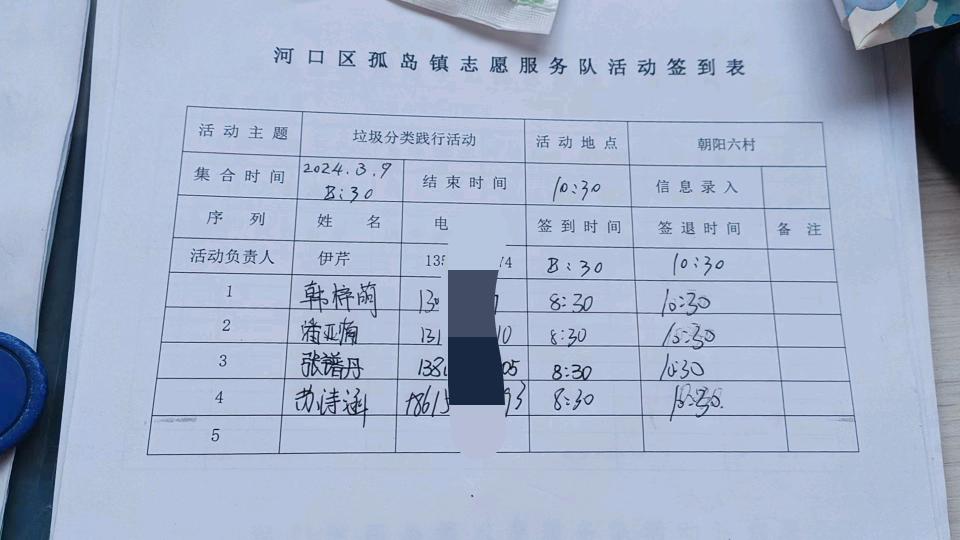 河口区孤岛镇志愿服务队活动签到表
活动主题 垃圾分类践行活动 活动地点 朝阳六村
集合时间 2024.3.9 8:30 结束时间 10:30 信息录入
序列 姓名 电 签到时间 签退时间 备注
活动负责人 伊芹 135 74 8:30 10:30
1 韩梓萌 130 8:30 10:30
2 潘亚 131 10 8:30 10:30
3 张谱丹 138 05 8:30 10:30
4 苏诗涵 18615 93 8:30 10:30
5